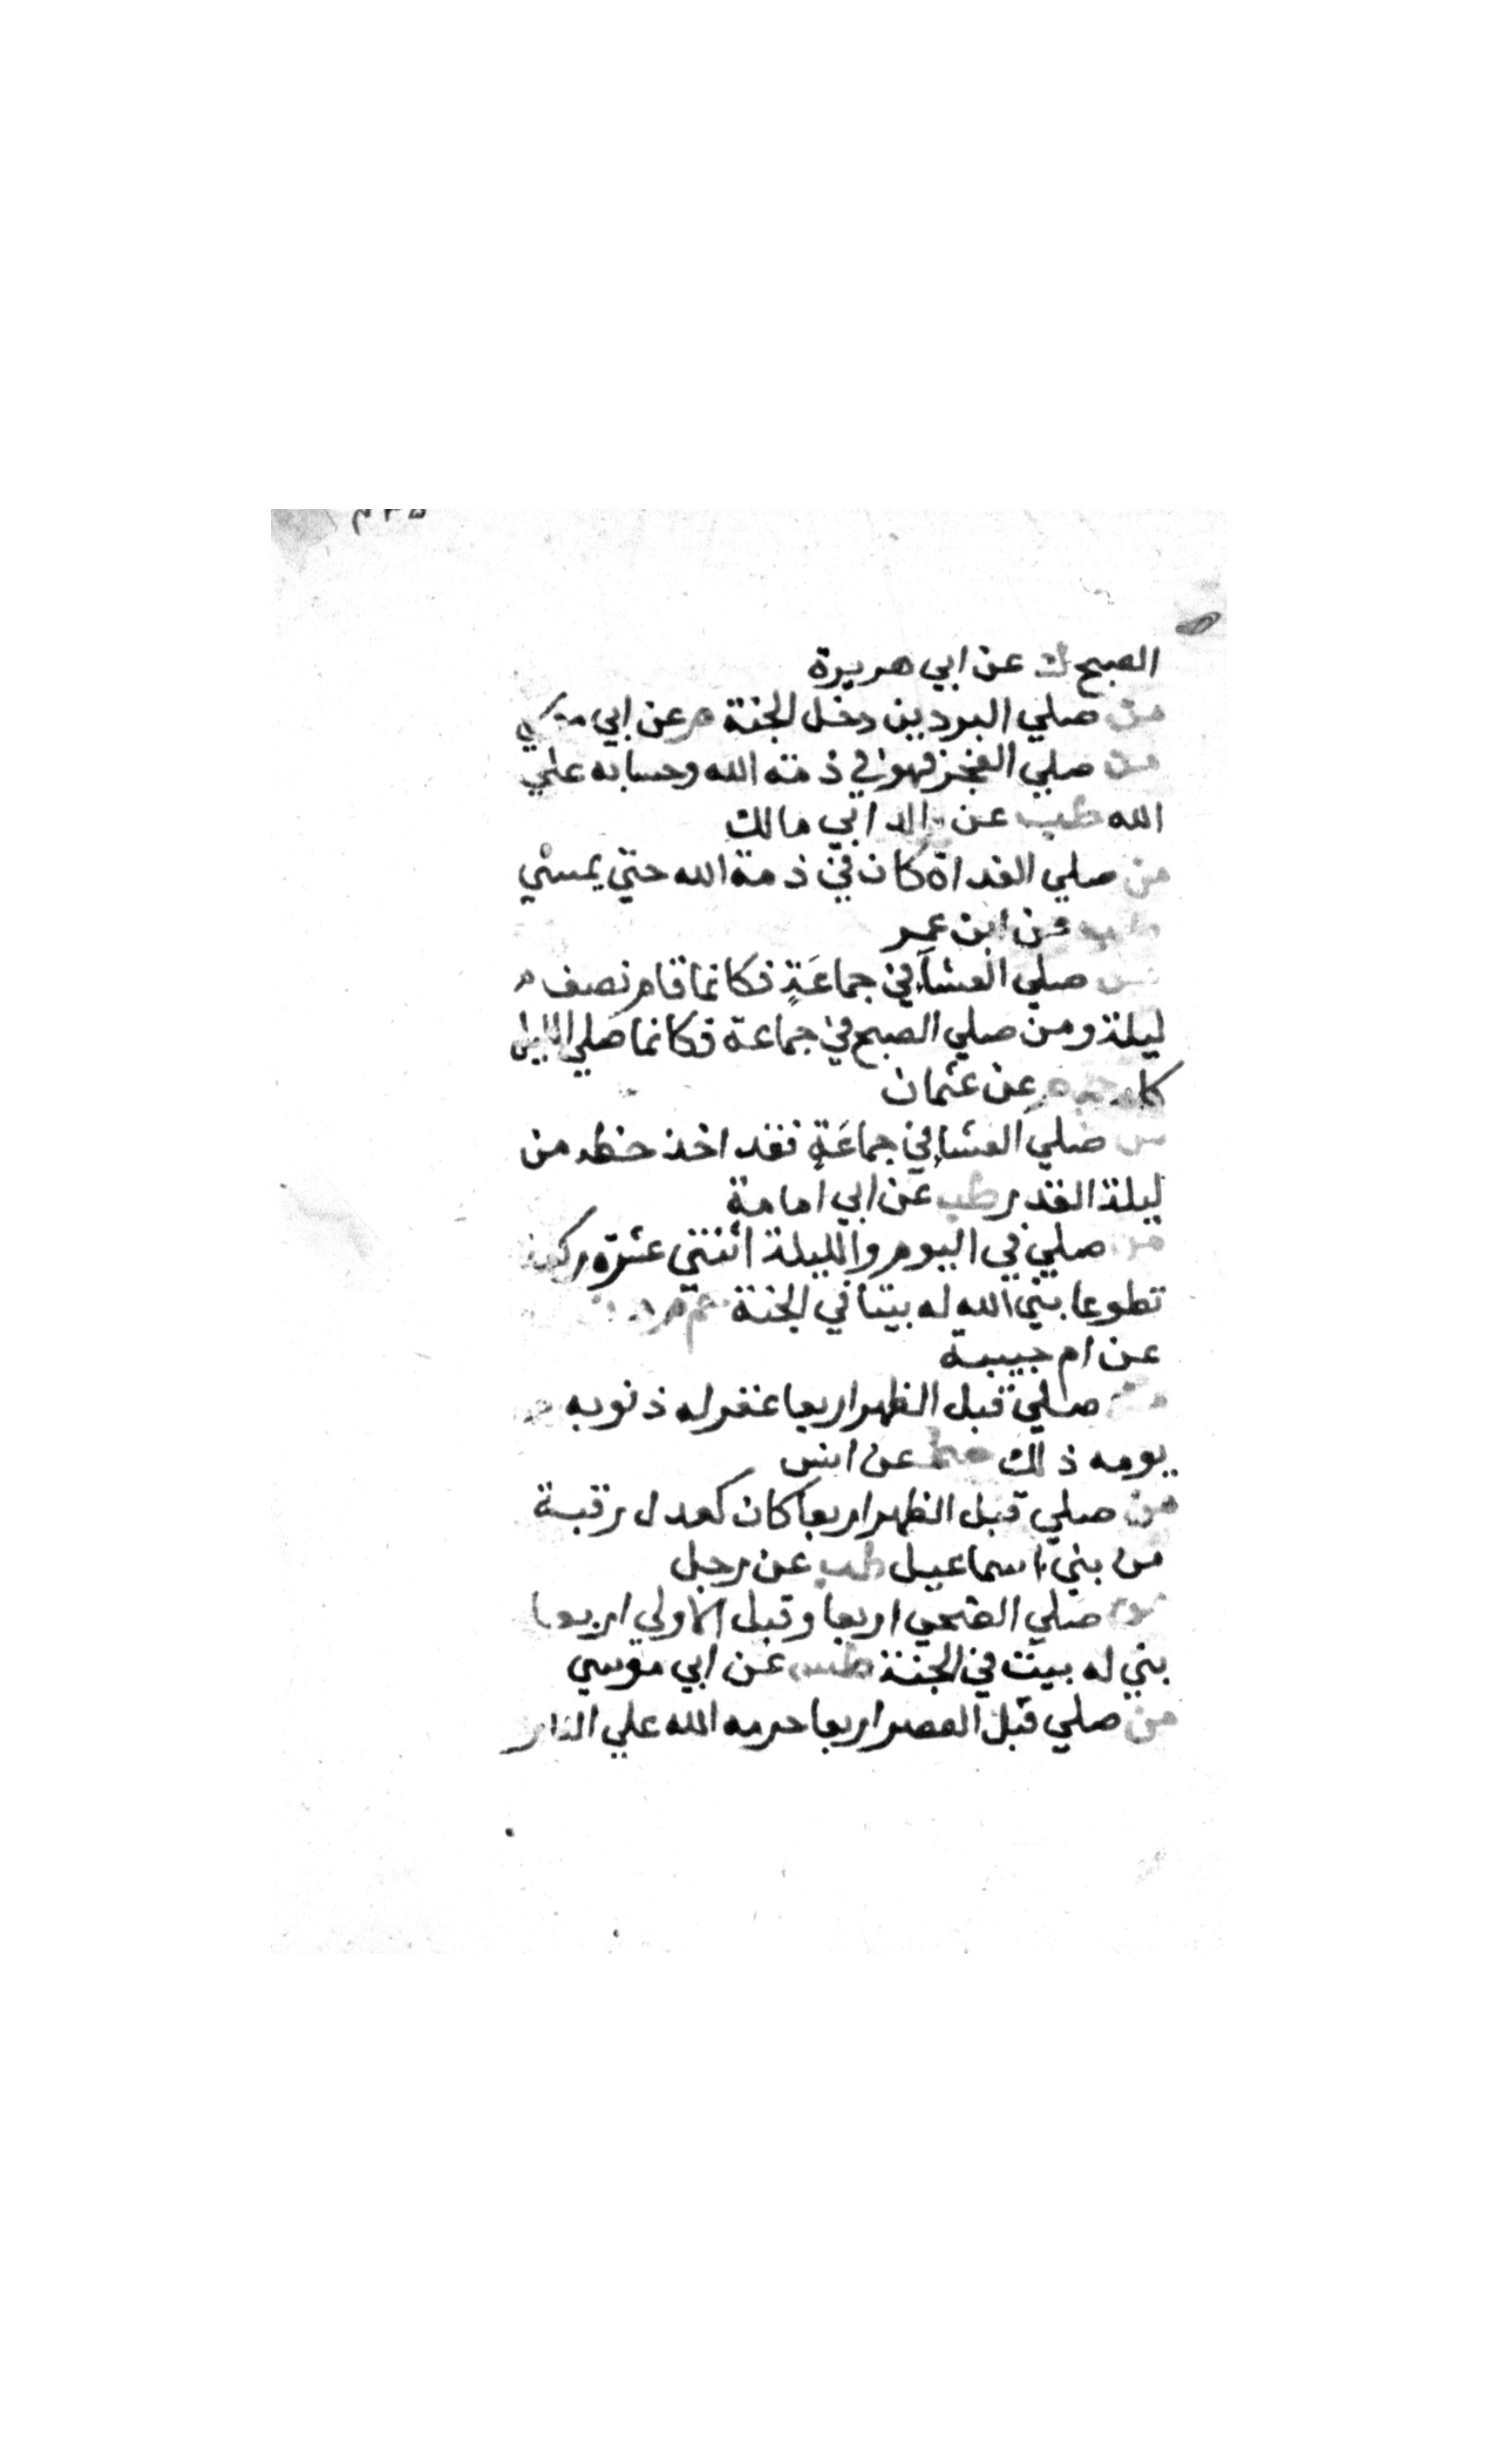 الصبح ك عن ابي هريرة
من صلي البردين دخل الجنة م عن ابي
من صلي الفجر فهو في ذمة الله وحسابه علي
الله طب عن والد ابي مالك
من صلي الغداة كان في ذمة الله حتي يمسي
طب عن ابن عمر
من صلي العشآ في جماعَةٍ فكانما قام نصف
ليلة ومن صلي الصبح في جماعة فكانما صلي الليل
كله حم م عن عثمان
من صلي العشا في جماعَةٍ فقد اخذ حظه من
ليلة القدر طب عن ابي امامة
من صلي في اليوم والليلة اثنتي عشرة ركعة
تطوعا بني الله له بيتا في الجنة حم م د ن
عن ام حبيبة
من صلي قبل الظهر اربعا غفر له ذنوبه
يومه ذلك خط عن انس
من صلي قبل الظهر اربعا كان كعدل رقبة
من بني اسماعيل طب عن رجل
من صلي الضحي اربعا وقبل الاولي اربعا
بني له بيت في الجنة طس عن ابي موسي
من صلي قبل العصر اربعا حرمه الله علي النار